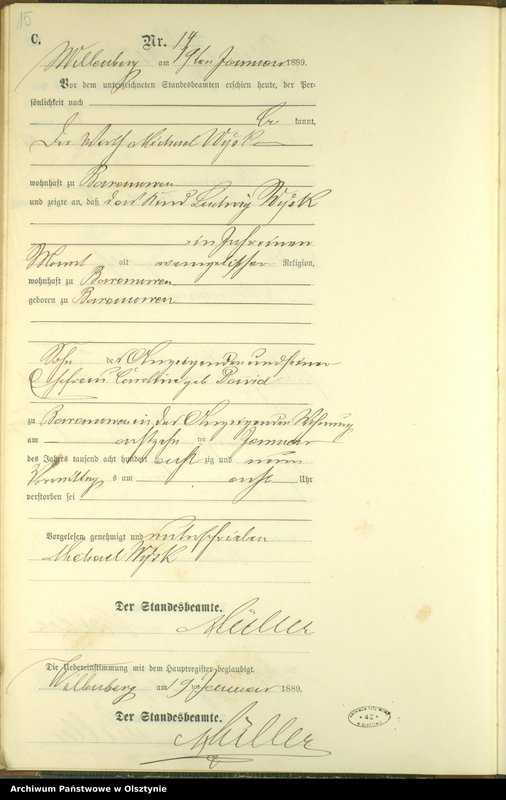 15
C.
Nr. 14
Willenberg am 19ten Januar 1889.
Vor dem unterzeichneten Standesbeamten erschien heute, der Per-
sönlichkeit nach
kannt,
Der Michael Wysk
wohnhaft zu Baranowen
und zeigte an, daß das Kind Ludwig Wysk
ein Jahr einen
Monat alt evangelischer Religion,
wohnhaft zu Baranowen
geboren zu Baranowen
Sohn des Anzeigenden und seiner
Ehefrau Caroline geb David
zu Baranowen in des Anzeigenden Wohnung
am achtzehn ten Januar
des Jahres tausend acht hundert acht zig und neun
Vormittag s um acht Uhr
verstorben sei
Vorgelesen, genehmigt und unterschrieben
Michael Wysk
Der Standesbeamte.
Müller
Die Uebereinstimmung mit dem Hauptregister beglaubigt.
Willenberg am 19ten Januar 1889.
Der Standesbeamte.
Müller
42
Archiwum Państwowe w Olsztynie